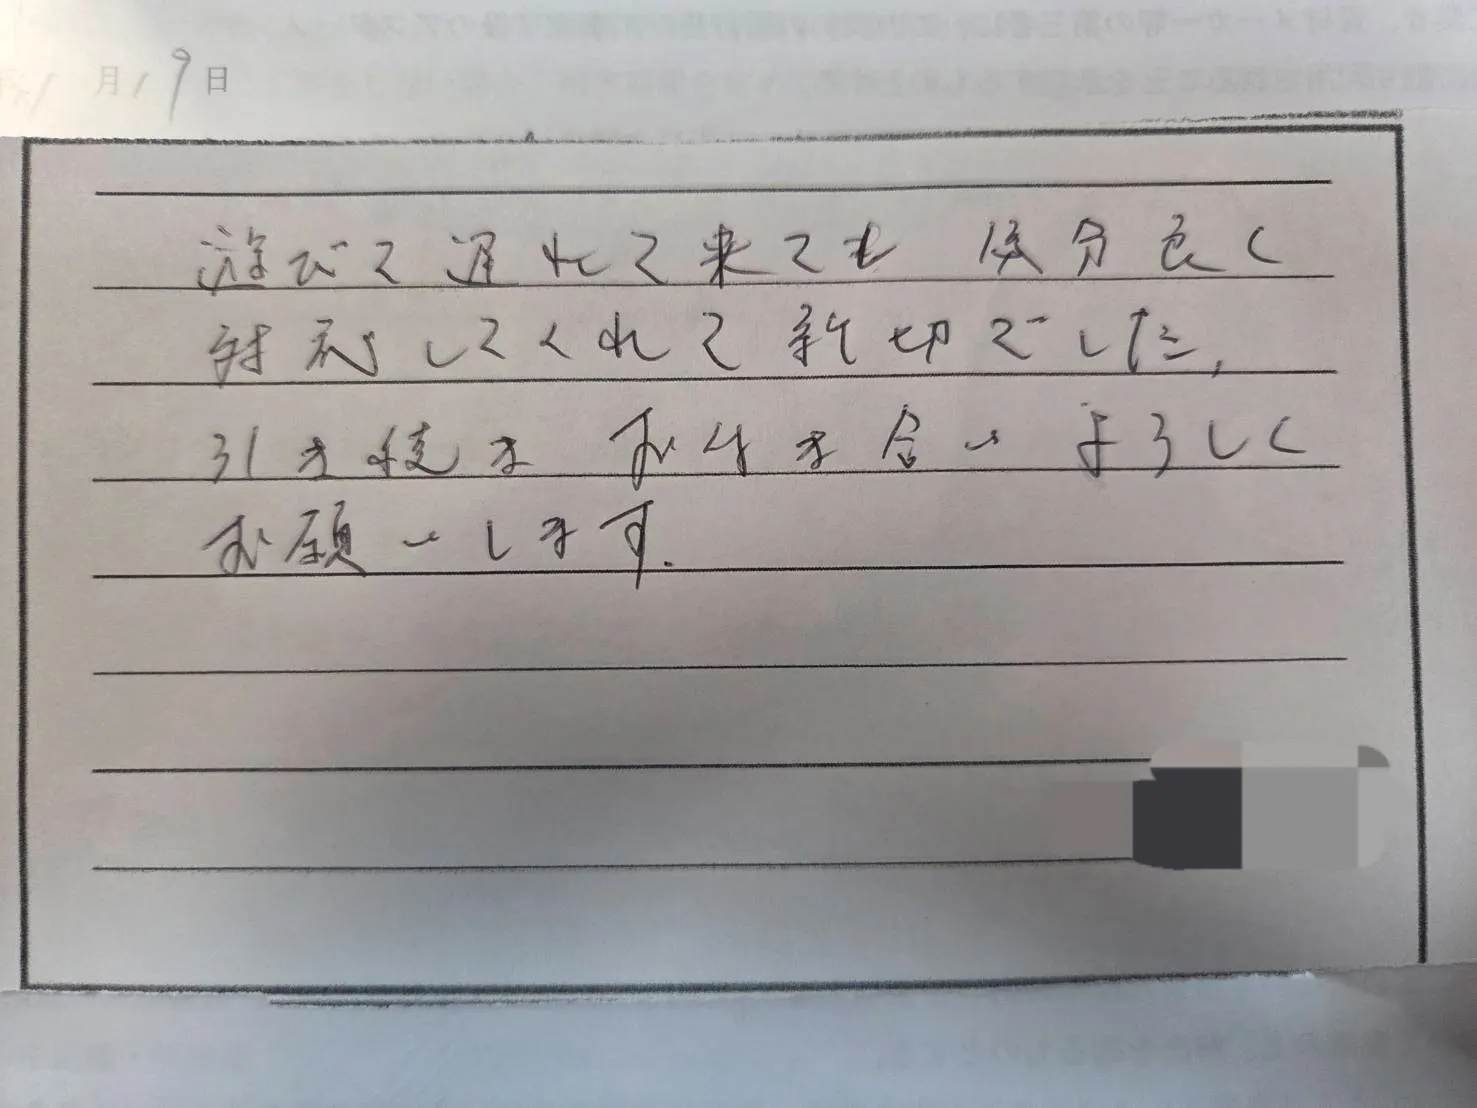 1月19日
遊びて連れて来ても 気分良く
対応してくれて親切でした、
引き続き お付き合い よろしく
お願いします.